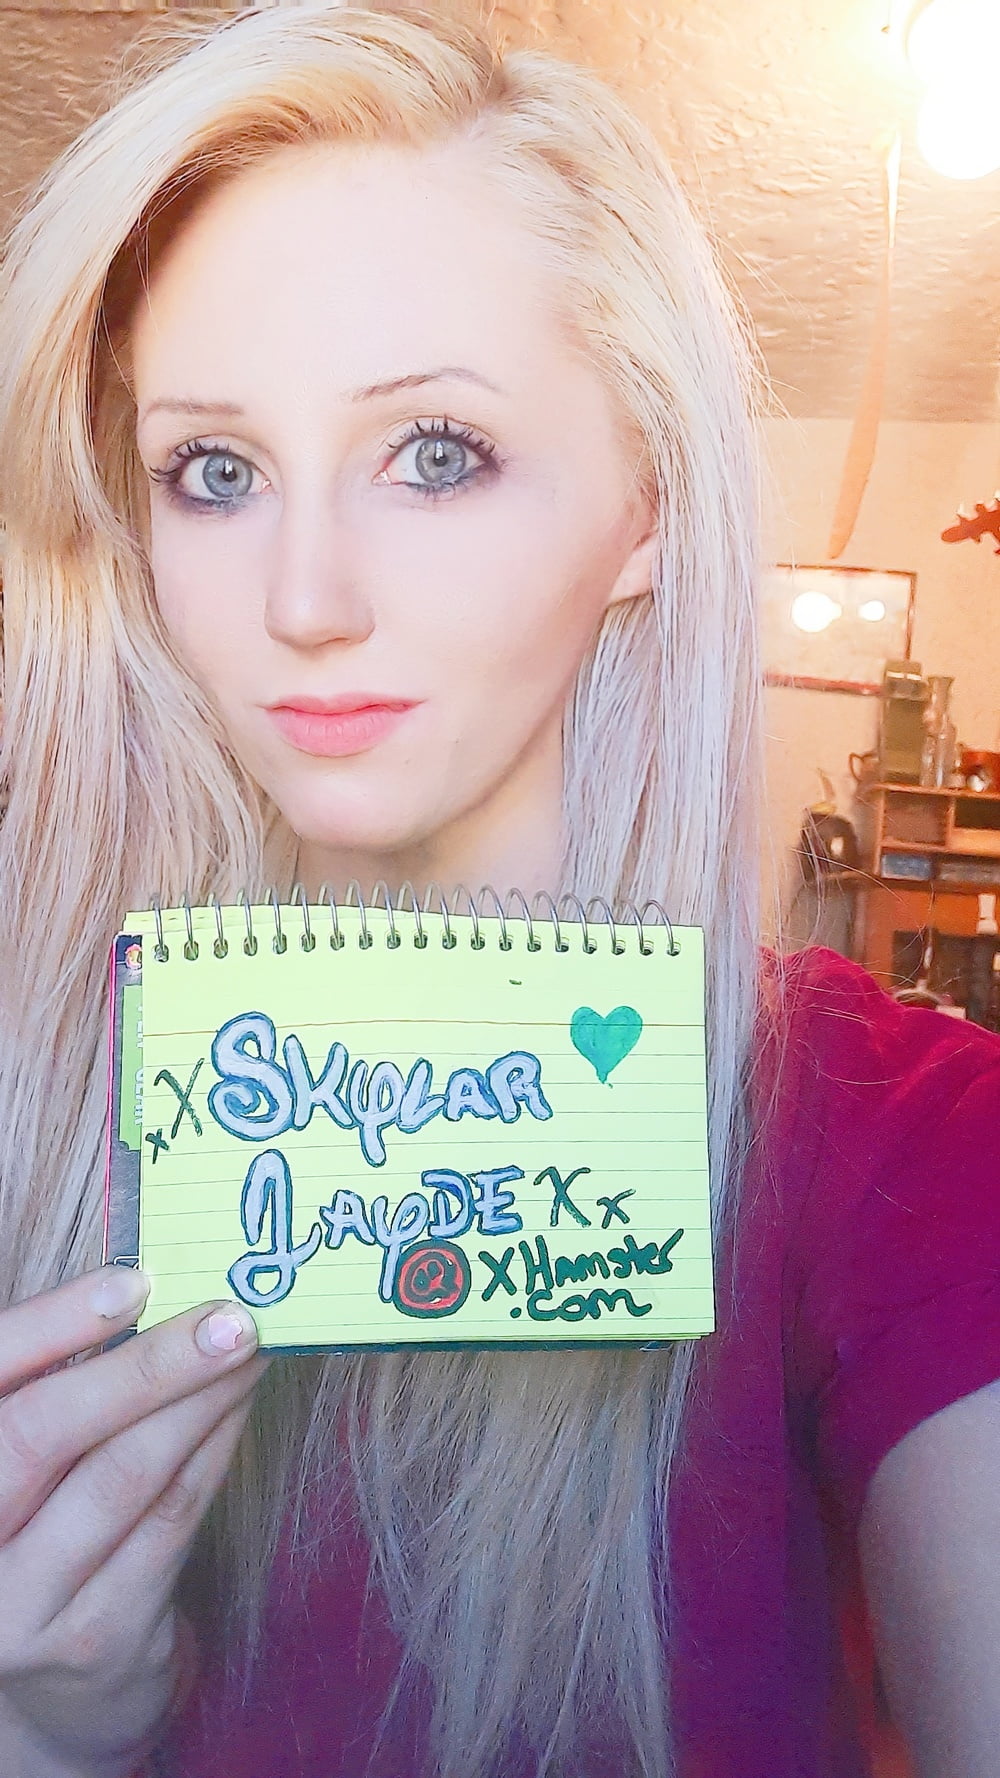 xX SKYLAR
JAYDE Xx
xHamster
.com